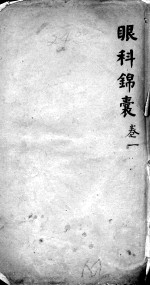 眼科錦囊 卷一